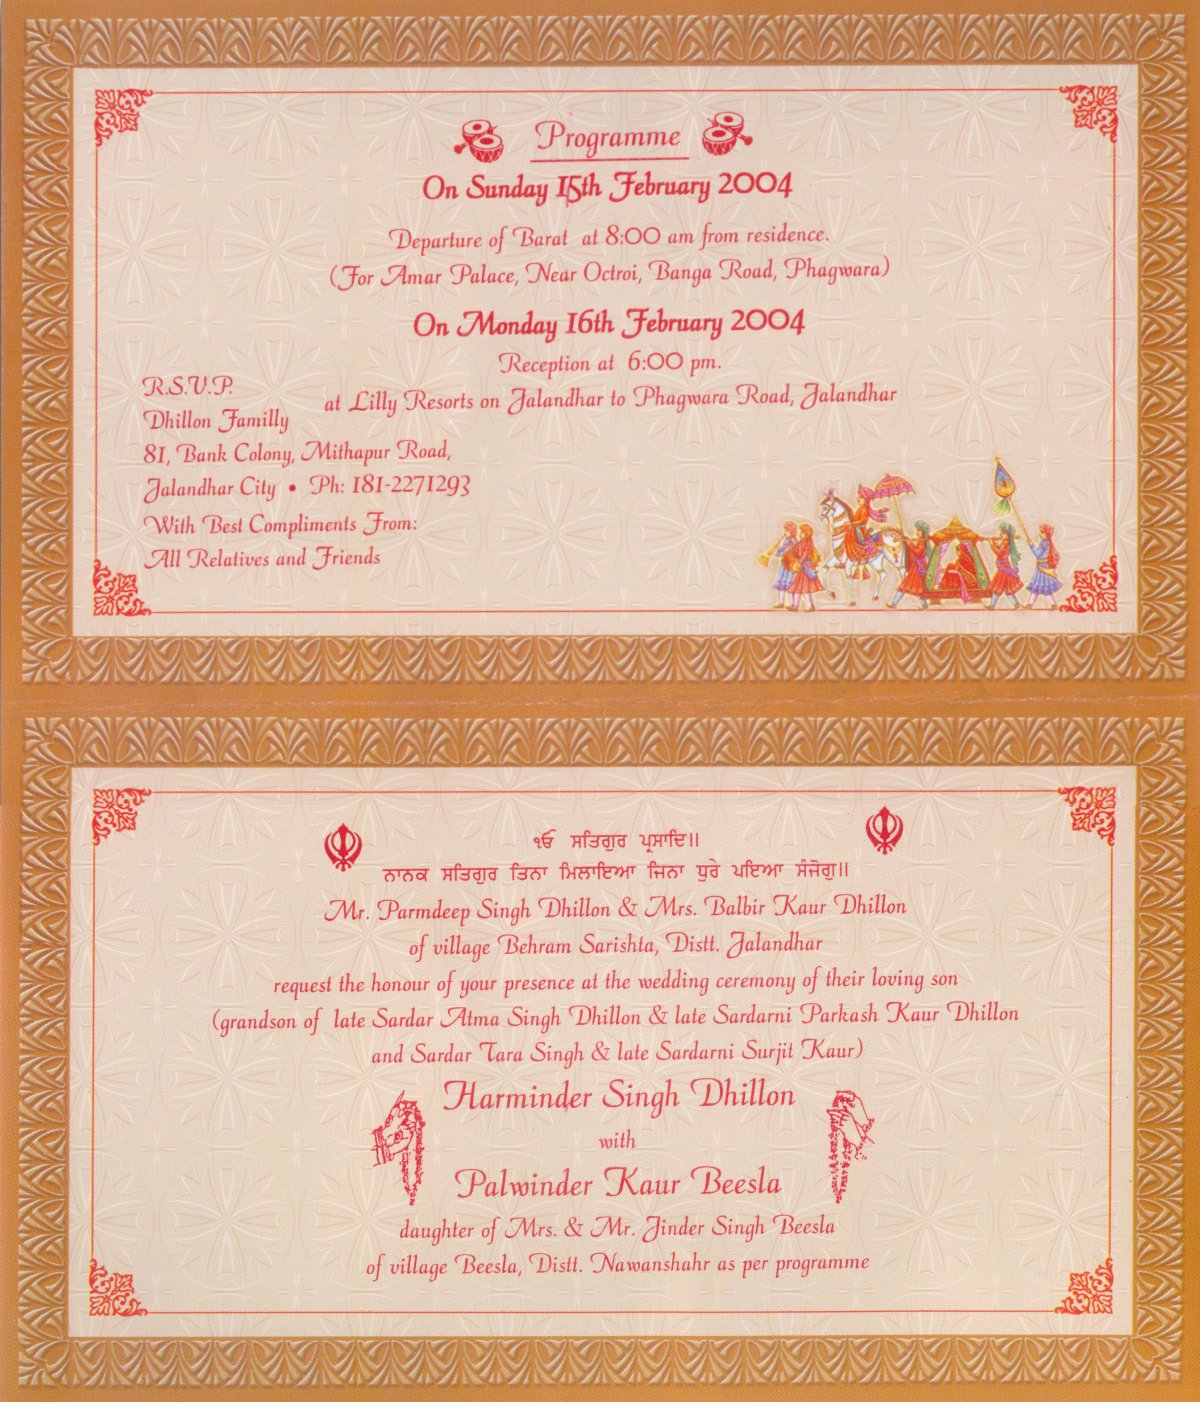 Programme
On Sunday 15th February 2004
Departure of Barat at 8:00 am from residence.
(For Amar Palace, Near Octroi, Banga Road, Phagwara)
On Monday 16th February 2004
Reception at 6:00 pm.
at Lilly Resorts on Jalandhar to Phagwara Road, Jalandhar
R.S.V.P.
Dhillon Familly
81, Bank Colony, Mithapur Road,
Jalandhar City • Ph: 181-2271293
With Best Compliments From:
All Relatives and Friends
ੴ ਸਤਿਗੁਰ ਪ੍ਰਸਾਦਿ॥
ਨਾਨਕ ਸਤਿਗੁਰ ਤਿਨਾ ਮਿਲਾਇਆ ਜਿਨਾ ਧੁਰੇ ਪਇਆ ਸੰਜੋਗੁ॥
Mr. Parmdeep Singh Dhillon & Mrs. Balbir Kaur Dhillon
of village Behram Sarishta, Distt. Jalandhar
request the honour of your presence at the wedding ceremony of their loving son
(grandson of late Sardar Atma Singh Dhillon & late Sardarni Parkash Kaur Dhillon
and Sardar Tara Singh & late Sardarni Surjit Kaur)
Harminder Singh Dhillon
with
Palwinder Kaur Beesla
daughter of Mrs. & Mr. Jinder Singh Beesla
of village Beesla, Distt. Nawanshahr as per programme